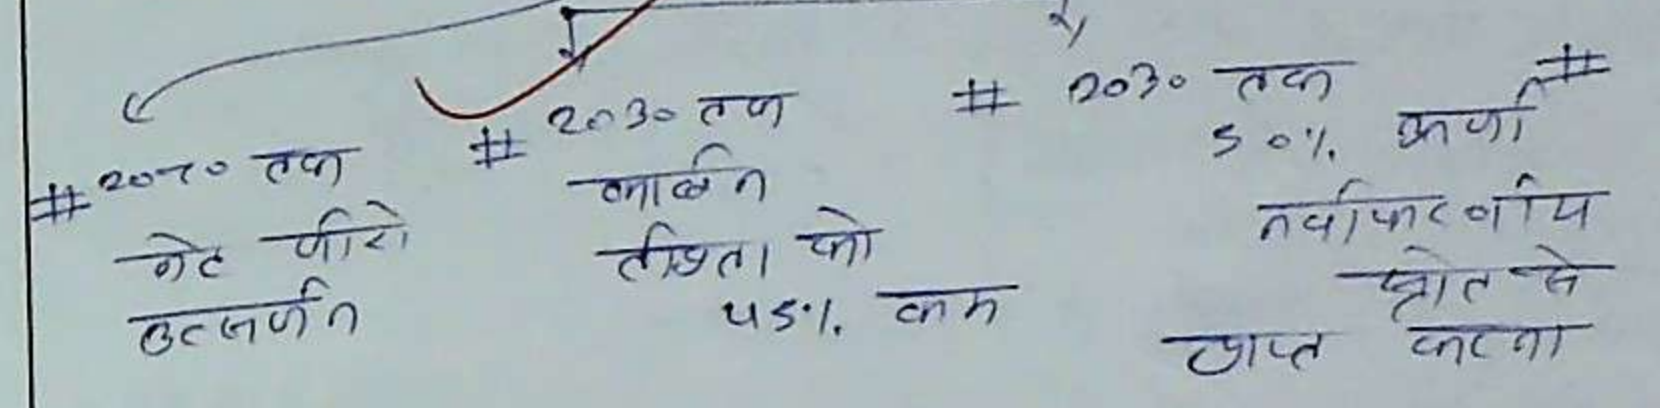 # 2070 तक
नेट जीरो
उत्सर्जन
# 2030 तक
कार्बन
तीव्रता को
45% कम
# 2030 तक
50% ऊर्जा
नवीकरणीय
स्रोत से
प्राप्त करना
#